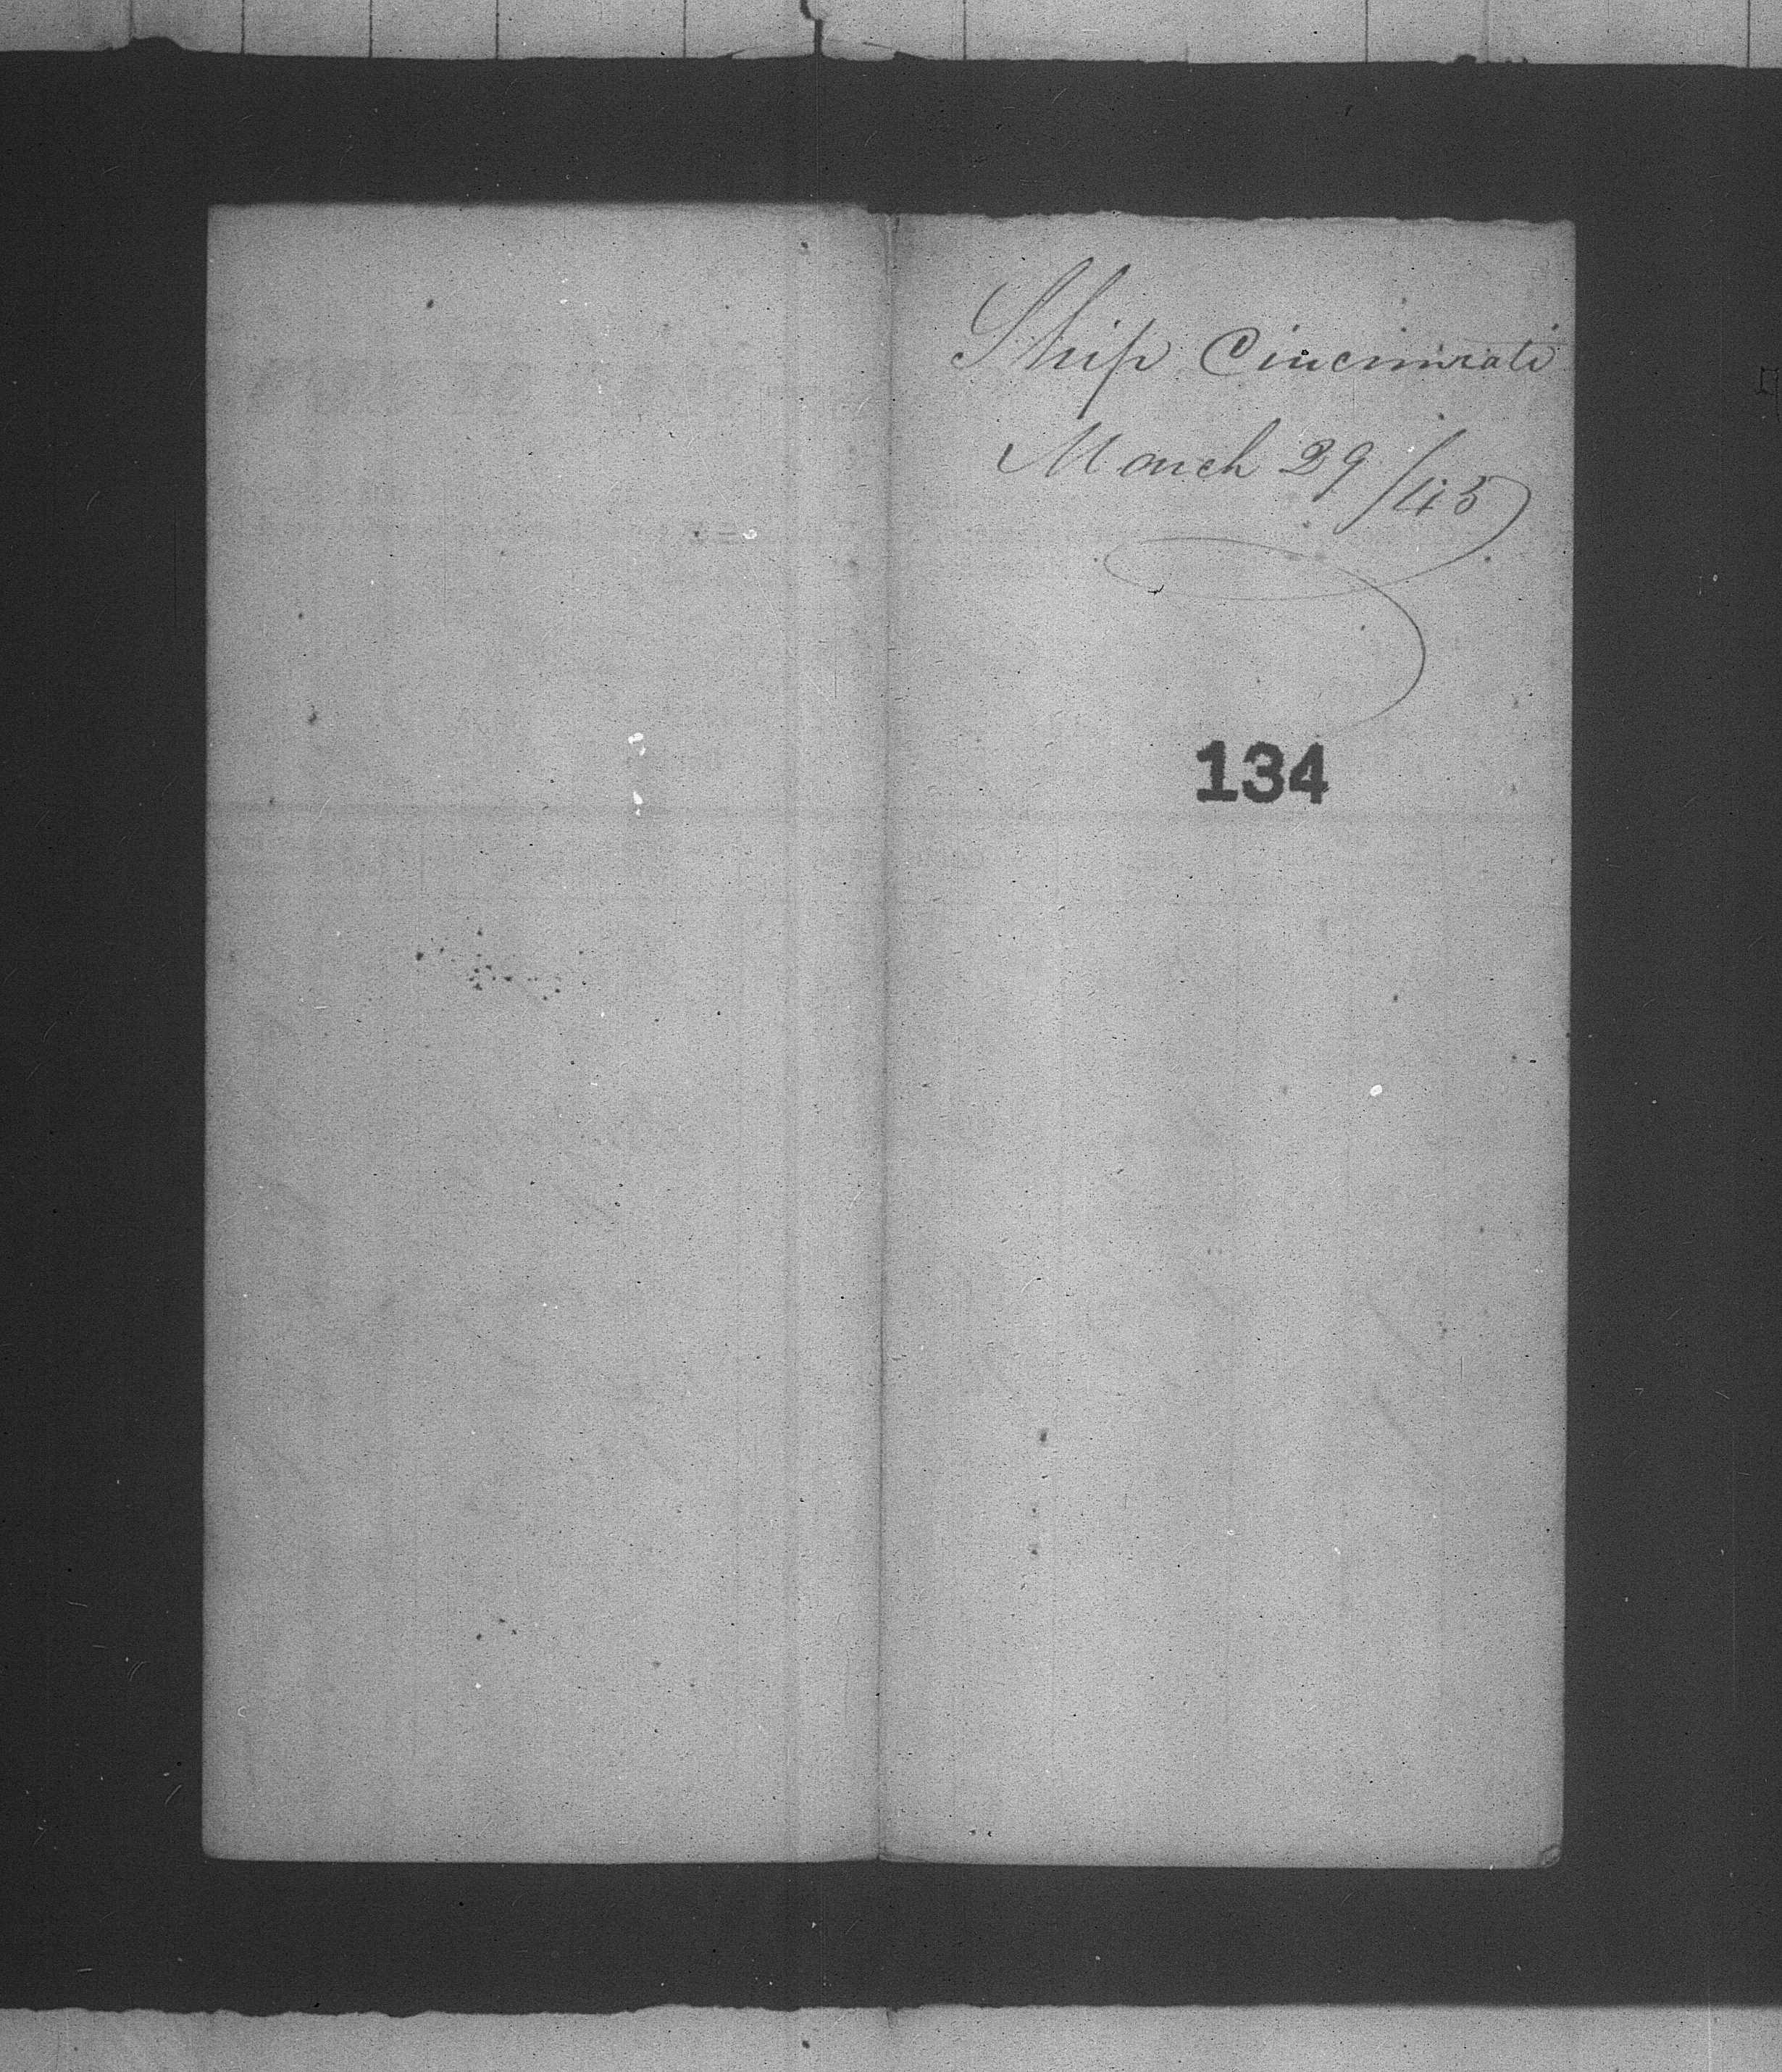 Ship Cincinnati
March 29/45
134